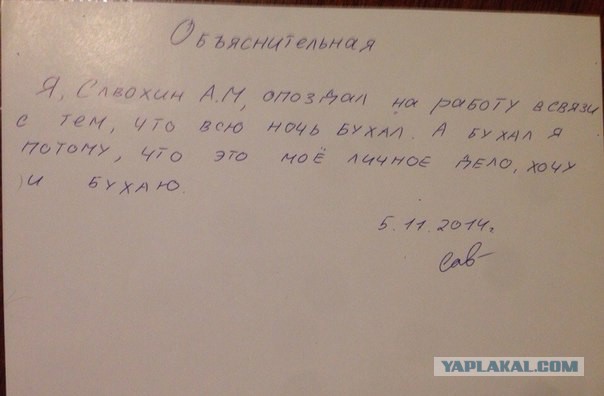 Объяснительная
Я, Савохин А.М, опоздал на работу в связи
с тем, что всю ночь бухал. А бухал я
потому, что это моё личное дело, хочу
и бухаю.
5.11.2014г.
Сав
YAPLAKAL.COM